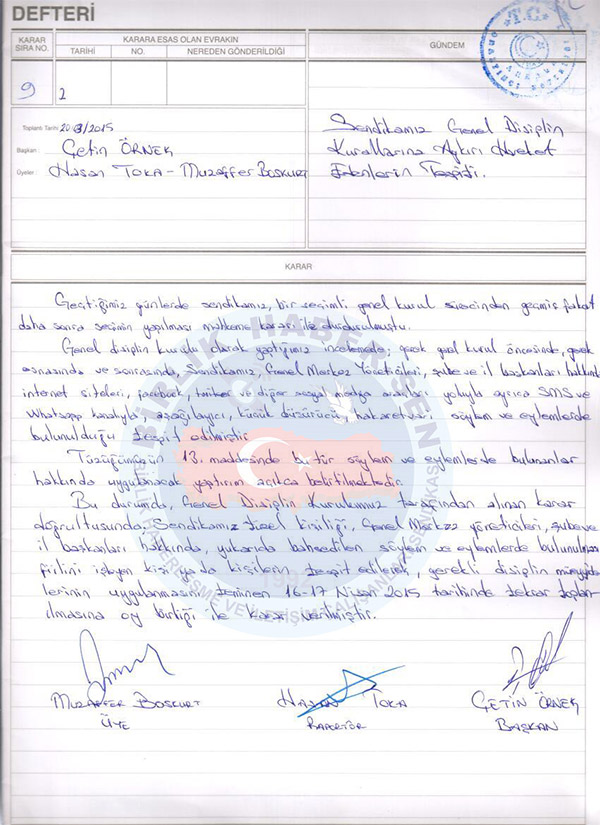 DEFTERİ
KARAR SIRA NO.
KARARA ESAS OLAN EVRAKIN
TARİHİ NO. NEREDEN GÖNDERİLDİĞİ
GÜNDEM
T.C.
9 2
Toplantı Tarihi 20 /2015
Başkan: Çetin ÖRNEK
Üyeler: Hasan TOKA - Muzaffer BOSKURT
Sendikamız Genel Disiplin
Kurallarına Aykırı Hareket
Edenlerin Tespiti.
KARAR
Geçtiğimiz günlerde sendikamız, bir seçimli genel kurul sürecinden geçmiş fakat
daha sonra seçimin yapılması mahkeme kararı ile durdurulmuştu.
Genel disiplin kurulu olarak yaptığımız incelemede; gerek genel kurul öncesinde, gerek
esnasında ve sonrasında, Sendikamız, Genel Merkez Yöneticileri, şube ve il başkanları hakkında
internet siteleri, facebook, twitter ve diğer sosyal medya araçları yoluyla ayrıca SMS ve
Whatsapp kanalıyla, aşağılayıcı, küçük düşürücü, hakaret söylem ve eylemlerde
bulunulduğu tespit edilmiştir
Tüzüğümüzün 13. maddesinde bu tür söylem ve eylemlerde bulunanlar
hakkında uygulanacak yaptırım açıkca belirtilmektedir.
Bu durumda, Genel Disiplin Kurulumuz tarafından alınan karar
doğrultusunda Sendikamız tüzel kişiliği, Genel Merkez yöneticileri, şube ve
il başkanları hakkında, yukarıda bahsedilen söylem ve eylemlerde bulunulması
fiilini işleyen kişi ya da kişilerin tespit edilerek, gerekli disiplin müeyyide
lerinin uygulanmasını teminen 16-17 Nisan 2015 tarihinde tekrar toplan
ılmasına oy birliği ile karar verilmiştir.
MUZAFFER BOSKURT HASAN TOKA ÇETİN ÖRNEK
ÜYE RAPORTÖR BAŞKAN
BİRLİK HABER-SEN
1992
HABERLEŞME VE İLETİŞİM ÇALIŞANLARI SENDİKASI